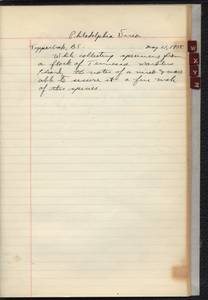 Philadelphia Vireo
May 21, 1915
While collecting specimens from
a flock of Tennessee Warblers
I heard the notes of a vireo & was
able to secure it a fine male
of this species.
W
X
Y
Z